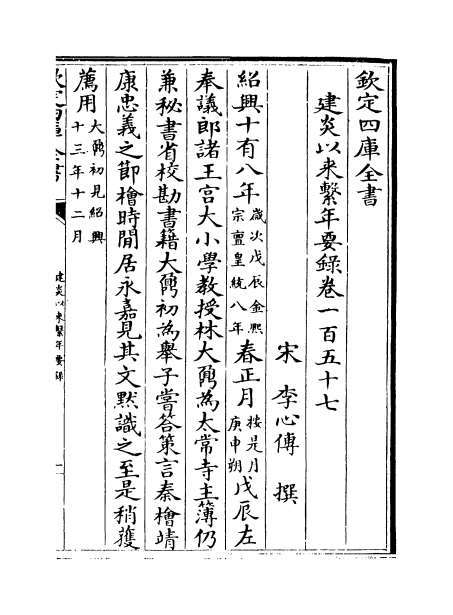 欽定四庫全書
建炎以來繫年要錄卷一百五十七
宋 李心傳 撰
紹興十有八年歲次戊辰金熙宗亶皇統八年春正月按是月庚申朔戊辰左
奉議郎諸王宫大小學教授林大鼐為太常寺主簿仍
兼秘書省校勘書籍大鼐初為舉子嘗答策言秦檜靖
康忠義之節檜時閒居永嘉見其文默識之至是稍獲
薦用大鼐初見紹興十三年十二月
欽定四庫全書
建炎以來繫年要錄
一